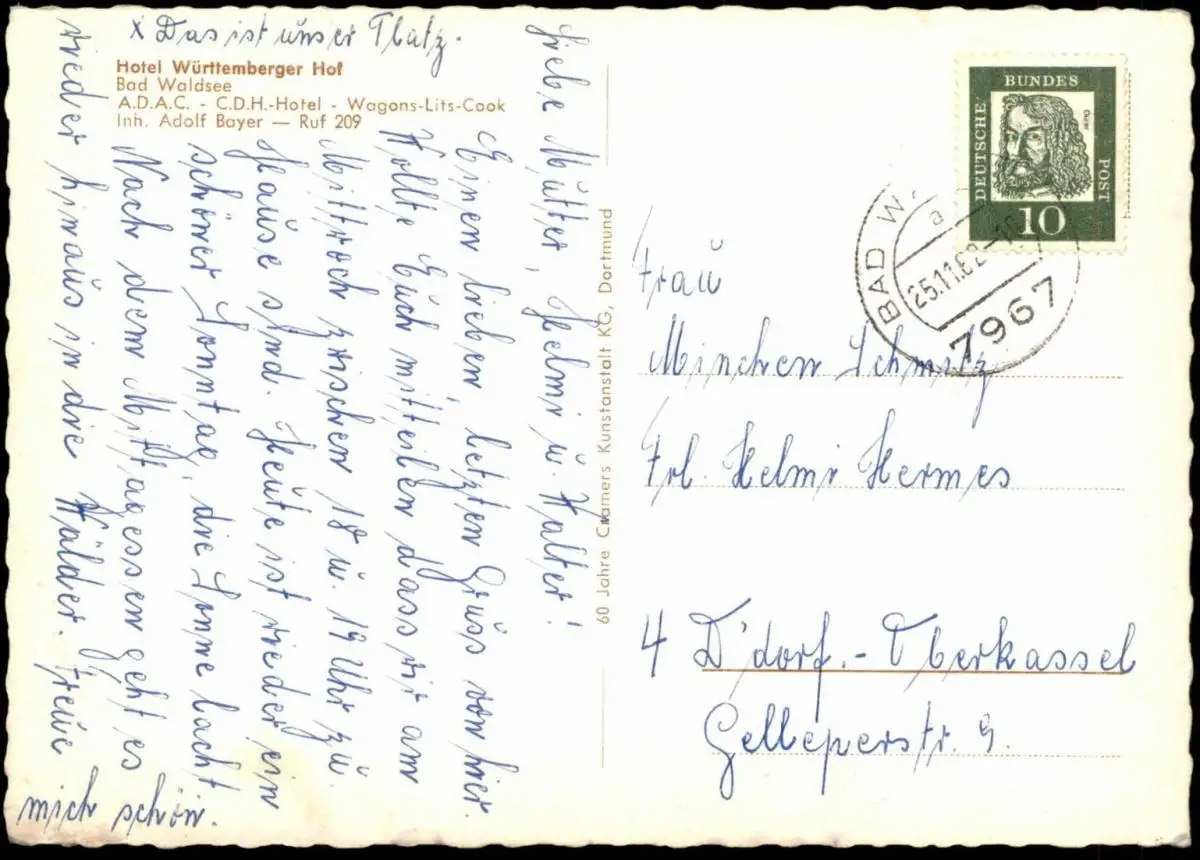 x Das ist unser Platz.
Hotel Württemberger Hof
Bad Waldsee
A.D.A.C. - C.D.H.-Hotel - Wagons-Lits-Cook
Inh. Adolf Bayer — Ruf 209
Liebe Mutter, Helmi u. Walter!
Einen lieben, letzten Gruss von hier.
Wollte Euch mitteilen dass wir am
Mittwoch zwischen 18 u. 19 Uhr zu
Hause sind. Heute ist wieder ein
schöner Sonntag, die Sonne lacht.
Nach dem Mittagessen geht es
wieder hinaus in die Wälder. Freue
mich schön.
60 Jahre Cramers Kunstanstalt KG, Dortmund
DEUTSCHE BUNDES POST
Dürer
10
BAD W
a
25.11.62-10
7967
Frau
Minchen Schmitz
Frl. Helmi Hermes
4 D'dorf.-Oberkassel
Gelleperstr. 9.